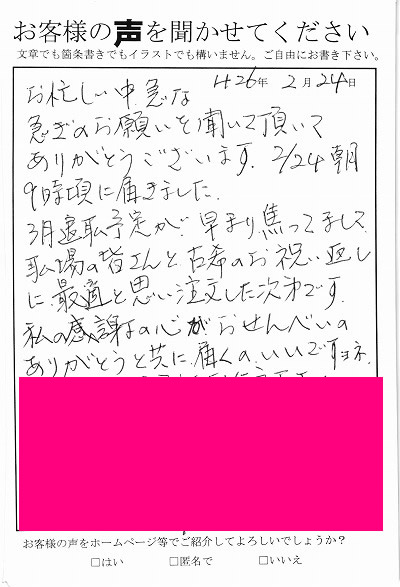 お客様の声を聞かせてください
文章でも箇条書きでもイラストでも構いません。ご自由にお書き下さい。
H26年 2月24日
お忙しい中急な
急ぎのお願いを聞いて頂いて
ありがとうございます。2/24朝
9時頃に届きました。
3月退職予定が 早まり焦ってまして
職場の皆さんと古希のお祝い返し
に最適と思い注文した次第です。
私の感謝の心がおせんべいの
ありがとうと共に届くの、いいですヨネ.
お客様の声をホームページ等でご紹介してよろしいでしょうか？
□はい □匿名で □いいえ